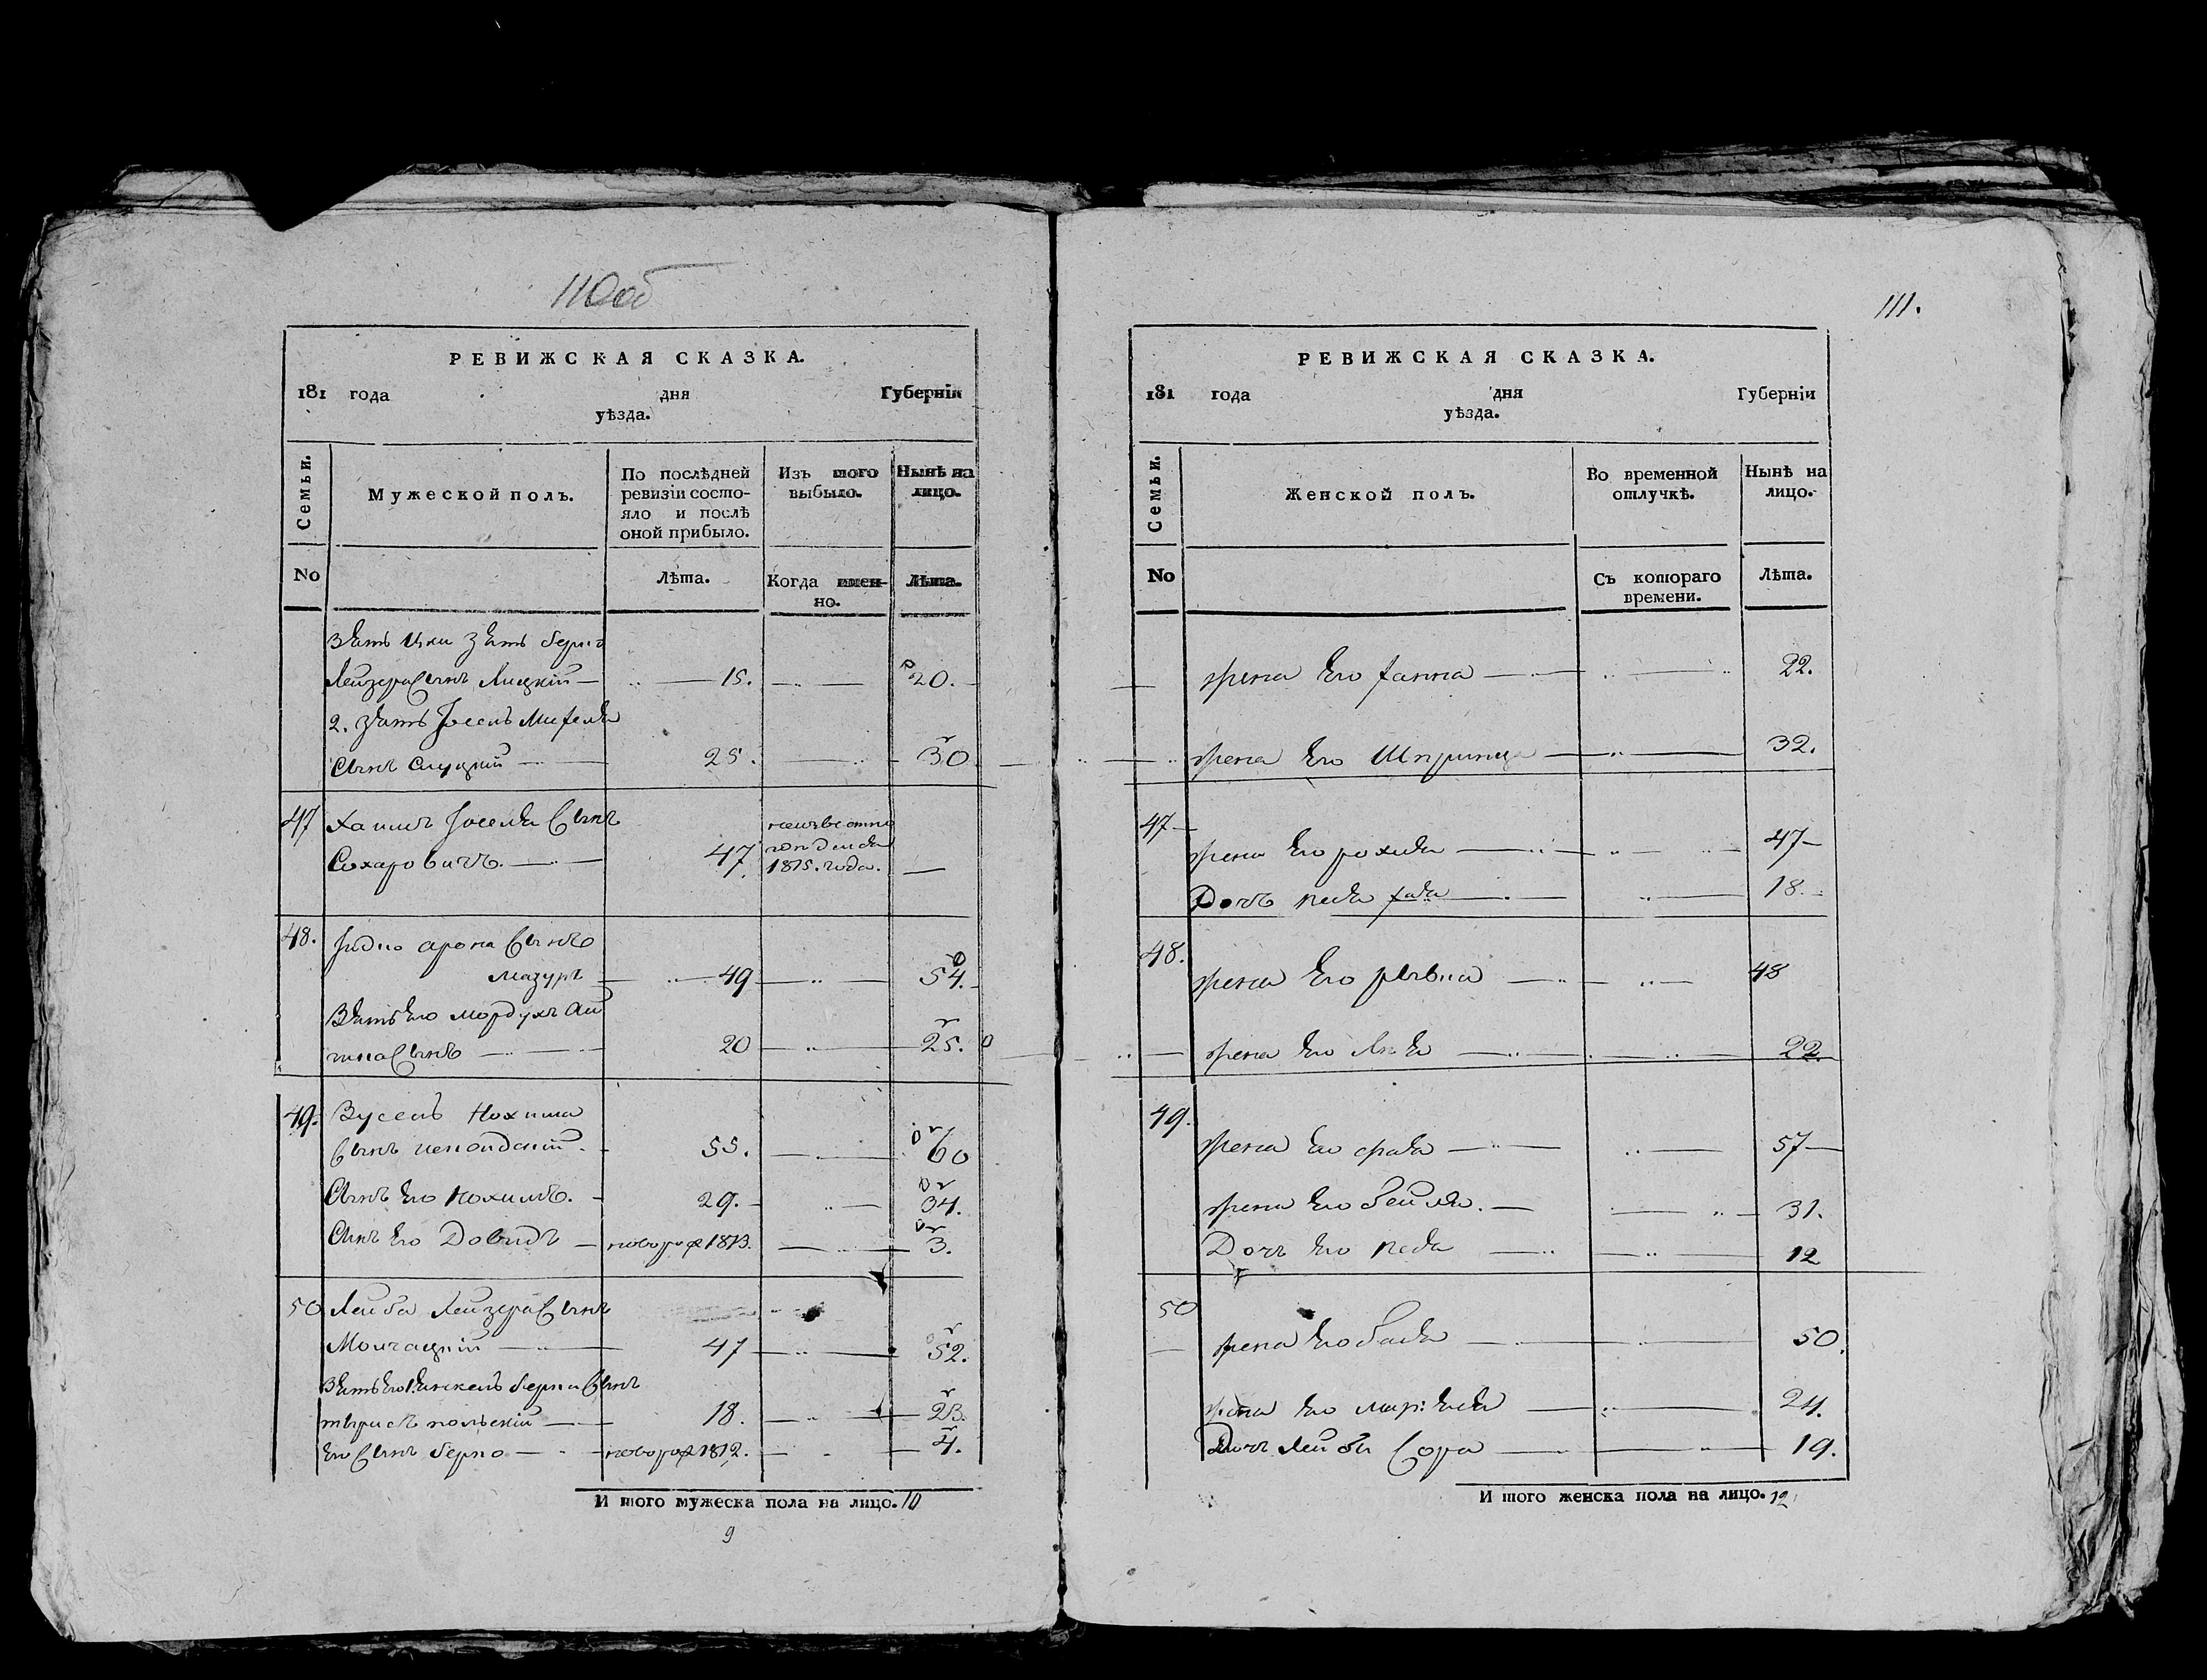 110об
РЕВИЖСКАЯ СКАЗКА.
181 года дня Губерніи
уѣзда.
Семьи.
Мужеской полъ.
По послѣдней ревизіи состо-
яло и послѣ
оной прибыло.
Изъ того выбыло.
Нынѣ на лицо.
No
Лѣта.
Когда имен-
но.
Лѣта.
зять Ицки зять берко
Лейзера Сынъ Лидскій 15. 20.
2. зять Іосель
Сынъ Слуцкій 25. 30
47 Хаимъ Іоселя Сынъ
Сохаровичъ. 47 1815. года.
48. Арона Сынъ
Мазуръ 49 54.
Зять Его Мордухъ
Сынъ 20 25.
49. Вусель Нохима
Сынъ 55. 60
Сынъ Его Нохимъ. 29. 34.
Сынъ Его Довидъ новорож 1813. 3.
50 Лейба Лейзера Сынъ
47 52.
Зять Его Янкель берки Сынъ
18. 23.
Его Сынъ берко новорож 1812. 4.
И того мужеска пола на лицо. 10
9
111.
РЕВИЖСКАЯ СКАЗКА.
181 года дня Губерніи
уѣзда.
Семьи.
Женской полъ.
Во временной
отлучкѣ.
Нынѣ на
лицо.
No
Съ котораго
времени.
Лѣта.
жена Его ханна 22.
жена Его Шпринца 32.
47 жена Его рохля 47
Дочь хая 18.
48. жена Его 48
жена Его 22.
49. жена Его 57
жена Его бейля. 31.
Дочь Его 12
50 жена Его бася 50.
жена Его 24.
Дочь Лейбы Сора 19.
И того женска пола на лицо. 12